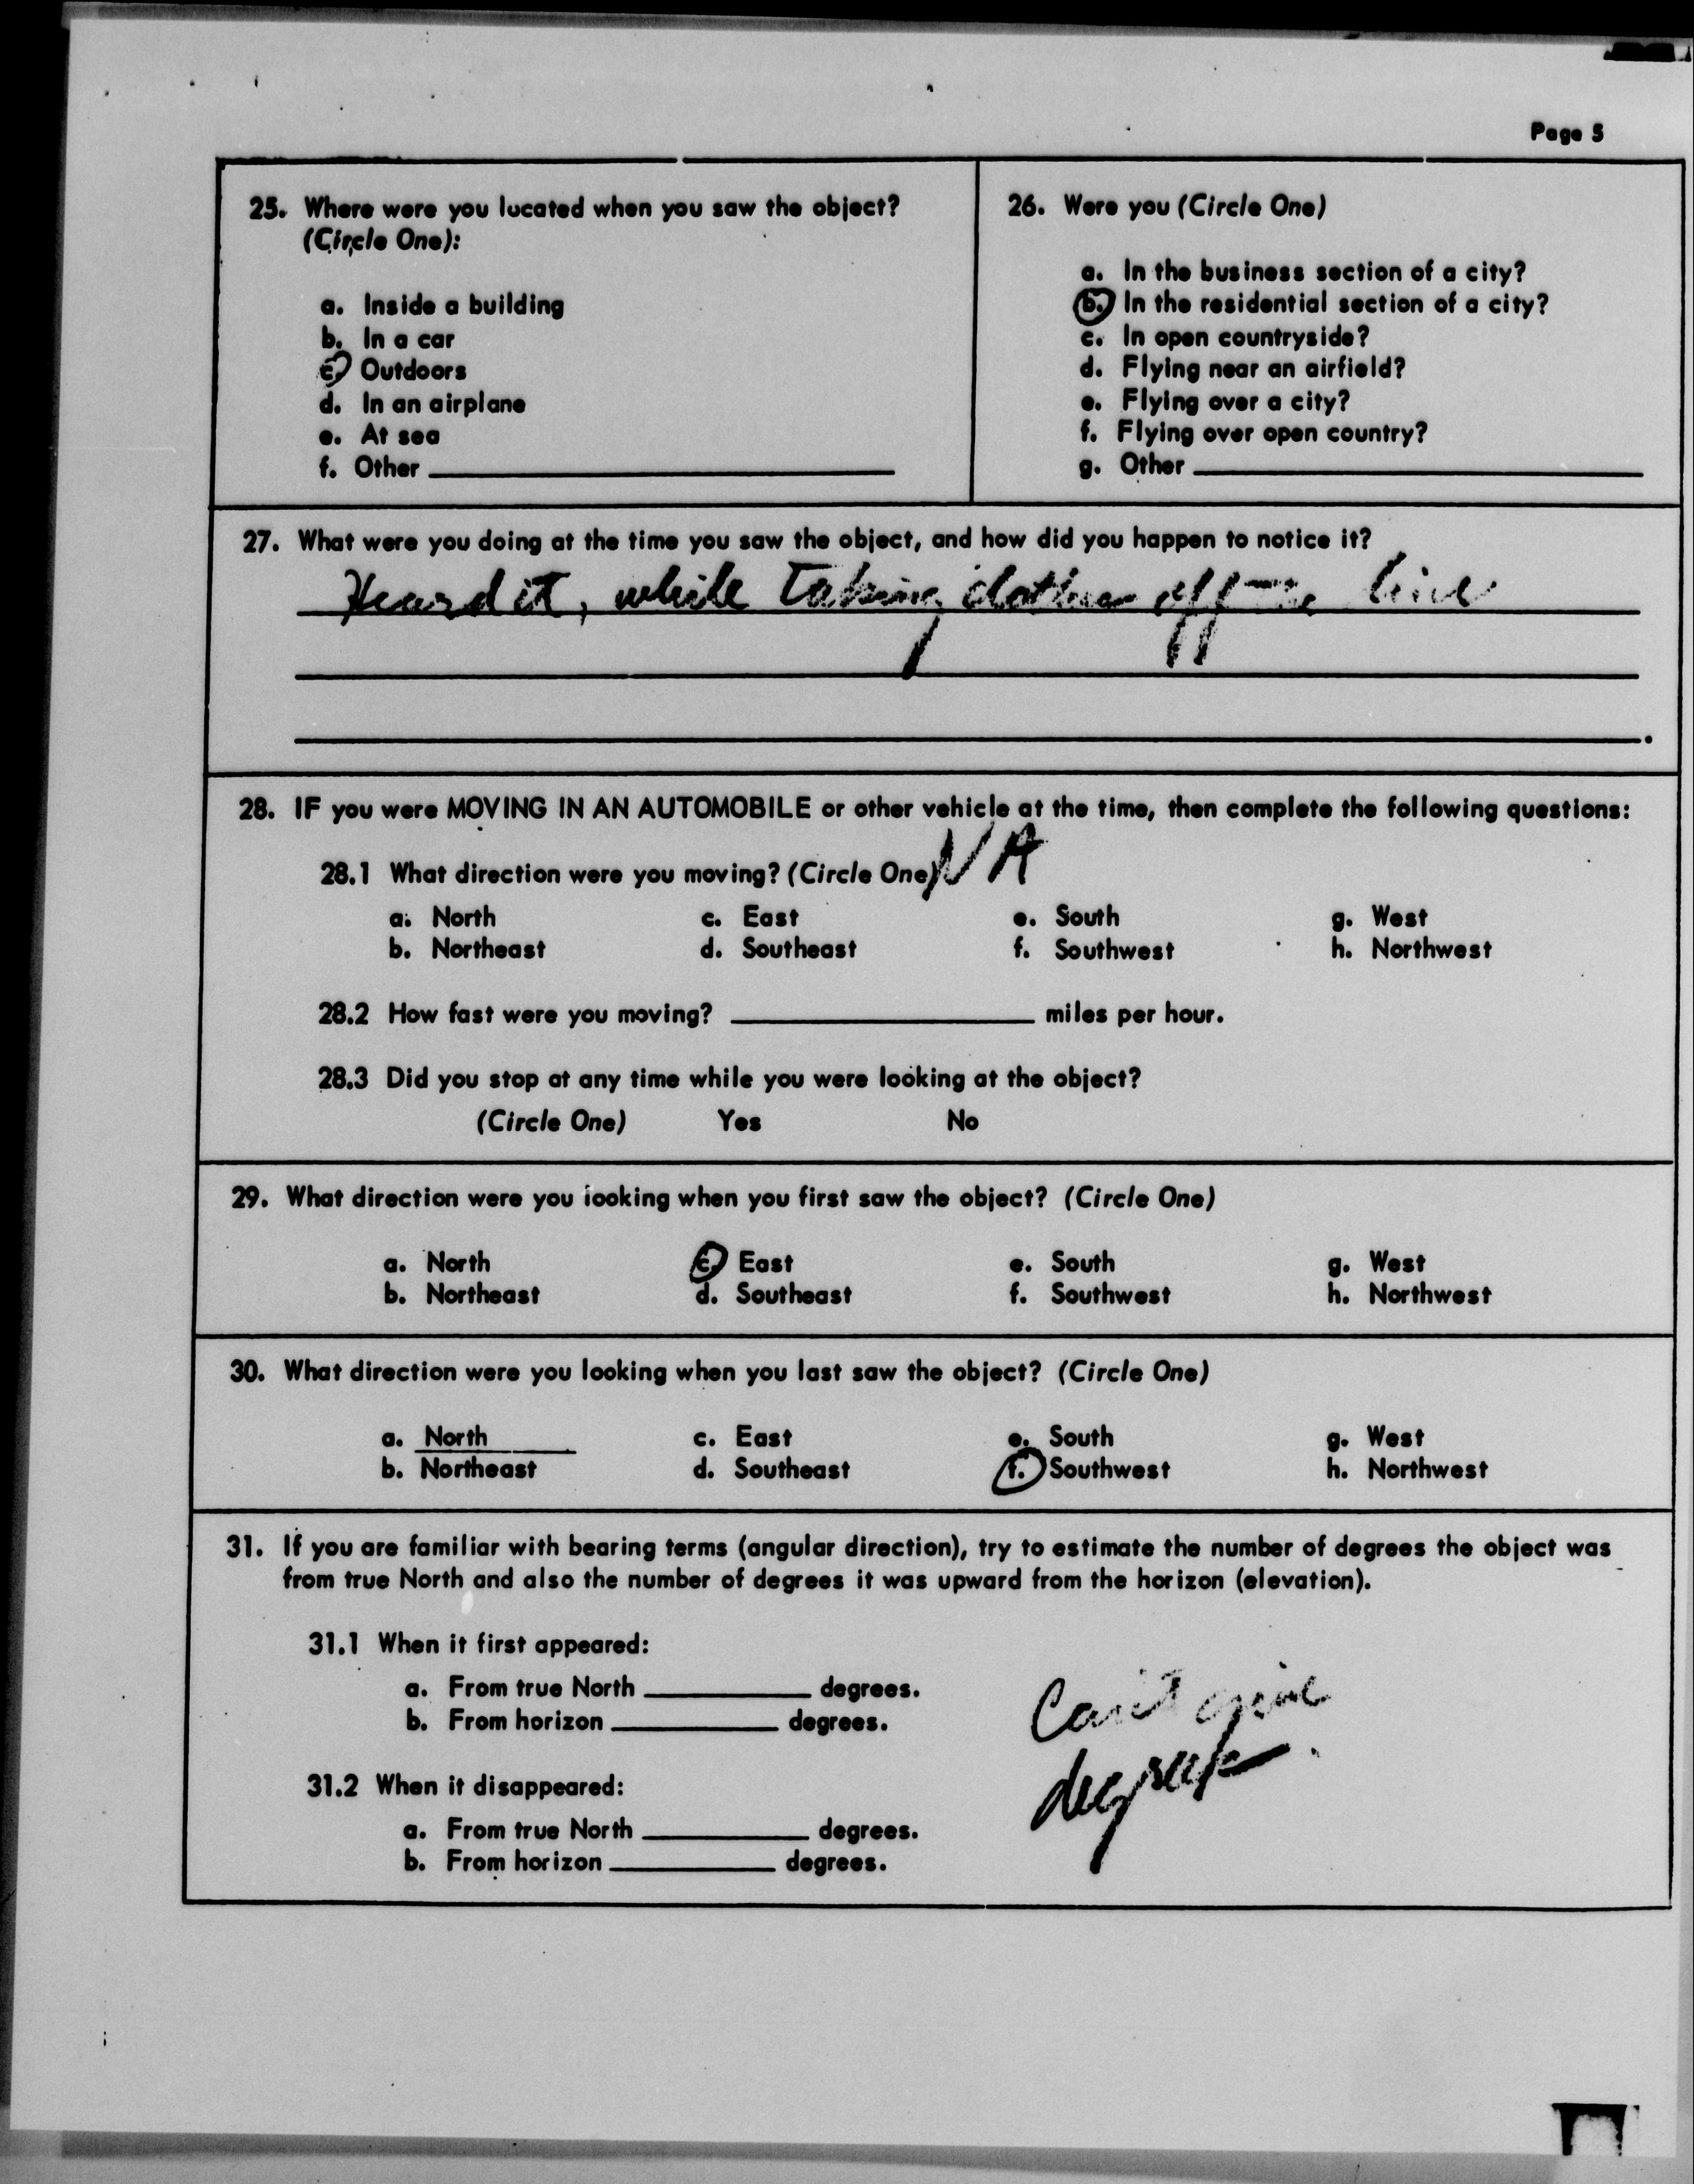 Page 5
25. Where were you located when you saw the object?
(Circle One):
a. Inside a building
b. In a car
c. Outdoors
d. In an airplane
e. At sea
f. Other
26. Were you (Circle One)
a. In the business section of a city?
b. In the residential section of a city?
c. In open countryside?
d. Flying near an airfield?
e. Flying over a city?
f. Flying over open country?
g. Other
27. What were you doing at the time you saw the object, and how did you happen to notice it?
Heard it, while taking clothes off the line
28. IF you were MOVING IN AN AUTOMOBILE or other vehicle at the time, then complete the following questions:
NA
28.1 What direction were you moving? (Circle One)
a. North c. East e. South g. West
b. Northeast d. Southeast f. Southwest h. Northwest
28.2 How fast were you moving? miles per hour.
28.3 Did you stop at any time while you were looking at the object?
(Circle One) Yes No
29. What direction were you looking when you first saw the object? (Circle One)
a. North c. East e. South g. West
b. Northeast d. Southeast f. Southwest h. Northwest
30. What direction were you looking when you last saw the object? (Circle One)
a. North c. East e. South g. West
b. Northeast d. Southeast f. Southwest h. Northwest
31. If you are familiar with bearing terms (angular direction), try to estimate the number of degrees the object was
from true North and also the number of degrees it was upward from the horizon (elevation).
31.1 When it first appeared:
a. From true North degrees.
b. From horizon degrees.
31.2 When it disappeared:
a. From true North degrees.
b. From horizon degrees.
Can't give
degrees.